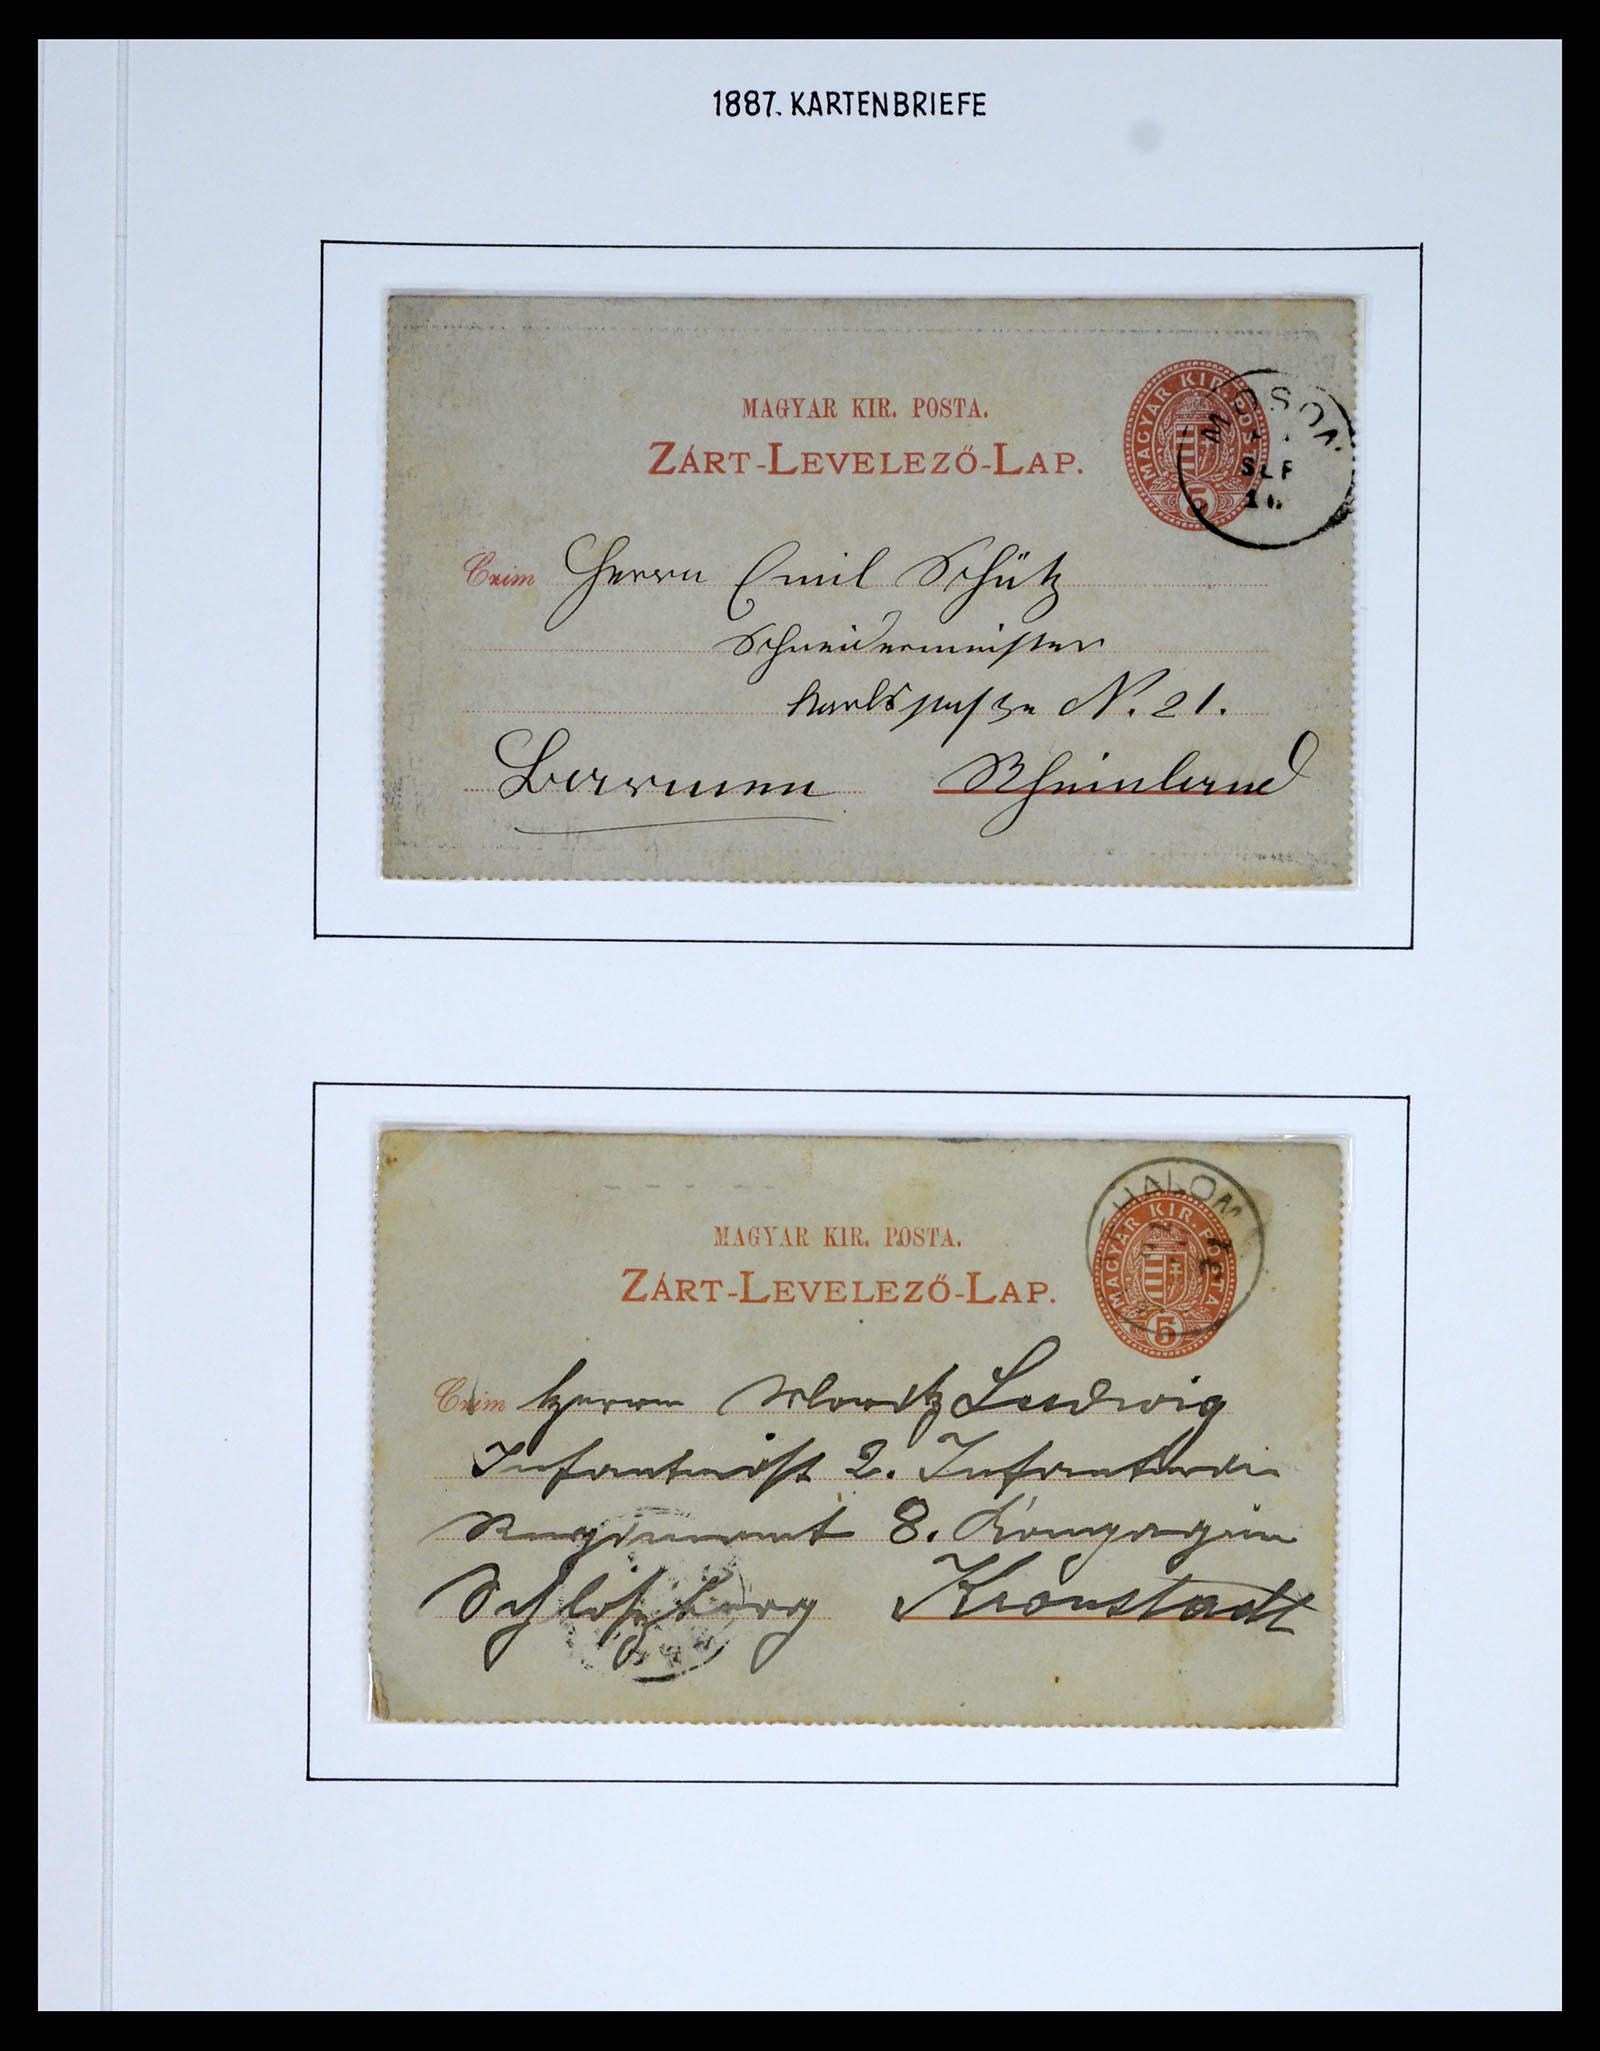 1887. KARTENBRIEFE
MAGYAR KIR. POSTA.
ZÁRT-LEVELEZŐ-LAP.
MAGYAR KIR. POSTA
5
MOSON
SEP
Czím Herrn Emil Schütz
Schneidermeister
Karlsstraße N. 21.
Barmen Rheinland
MAGYAR KIR. POSTA.
ZÁRT-LEVELEZŐ-LAP.
MAGYAR KIR. POSTA
5
HALOM
Czím Herrn Moritz Ludwig
Infanterist 2. Infanterie
Regiment 8. Kompagnie
Schloßberg Kronstadt